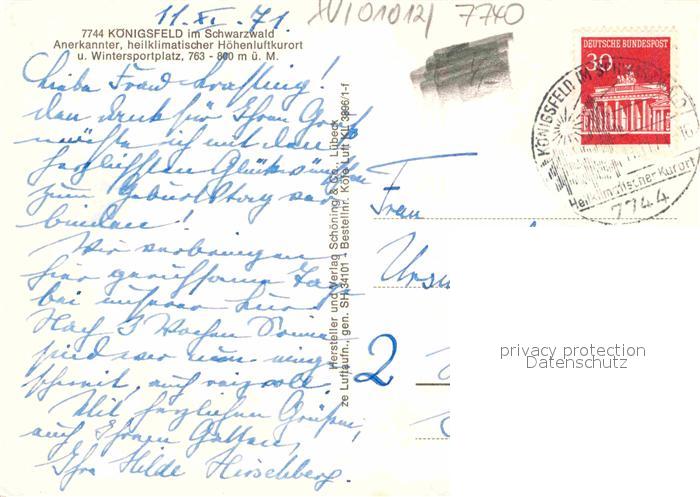 11.XI.71.
XV/01012/ 7740
7744 KÖNIGSFELD im Schwarzwald
Anerkannter, heilklimatischer Höhenluftkurort
u. Wintersportplatz, 763 - 800 m ü. M.
DEUTSCHE BUNDESPOST
30
KÖNIGSFELD IM
Heilklimatischer Kurort
7744
Liebe Frau
den Dank für Ihren Gruß
möchte ich mit den
herzlichsten Glückwünschen
zum Geburtstag ver
binden!
Wir verbringen
hier geruhsame Tage
bei unserer Kur
Nach 3 Wochen Sonne
sind wir nun einge
schneit, auch reizvoll.
Mit herzlichen Grüßen,
auch Ihrem Gatten,
Ihre Hilde Hirschberg.
Hersteller und Verlag Schöning & Co., Lübeck
ze Luftaufn., gen. SH 34101 - Bestellnr. Köfe Luft KiL 3896/1-f
Frau
Ursu
2
privacy protection
Datenschutz